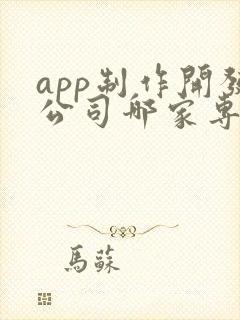 app制作開發
公司哪家專
馬蘇